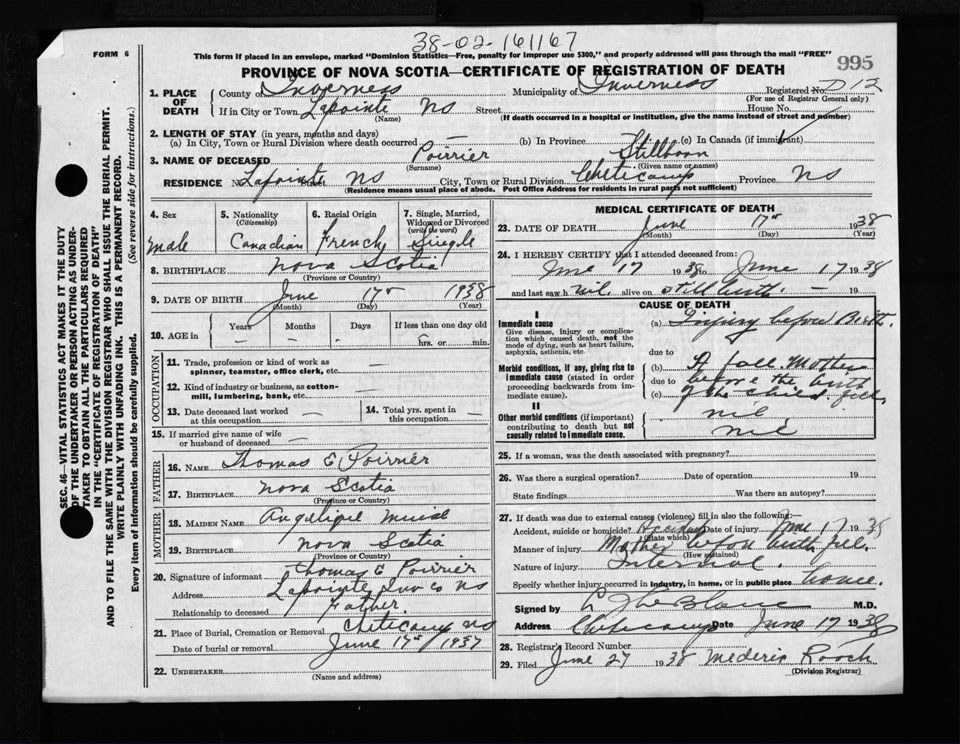 38-02-161167
FORM 6
This form if placed in an envelope, marked "Dominion Statistics—Free, penalty for improper use $300," and properly addressed will pass through the mail "FREE"
995
PROVINCE OF NOVA SCOTIA—CERTIFICATE OF REGISTRATION OF DEATH
1. PLACE OF DEATH County of Inverness Municipality of Inverness Registered No. D12
(For use of Registrar General only)
If in City or Town Lapointe NS Street House No.
(Name) (If death occurred in a hospital or institution, give the name instead of street and number)
2. LENGTH OF STAY (in years, months and days)
(a) In City, Town or Rural Division where death occurred — (b) In Province (c) In Canada (if immigrant)
3. NAME OF DECEASED Poirrier Stillborn
(Surname) (Given name or names)
RESIDENCE No. Lapointe Street NS City, Town or Rural Division Cheticamp Province NS
(Residence means usual place of abode. Post Office Address for residents in rural parts not sufficient)
4. Sex male
5. Nationality (Citizenship) Canadian
6. Racial Origin French
7. Single, Married, Widowed or Divorced (write the word) Single
8. BIRTHPLACE Nova Scotia
(Province or Country)
9. DATE OF BIRTH June 17th 1938
(Month) (Day) (Year)
10. AGE in Years — Months — Days - If less than one day old hrs. or min.
OCCUPATION
11. Trade, profession or kind of work as spinner, teamster, office clerk, etc. —
12. Kind of industry or business, as cotton-mill, lumbering, bank, etc. —
13. Date deceased last worked at this occupation —
14. Total yrs. spent in this occupation —
15. If married give name of wife or husband of deceased —
FATHER
16. NAME Thomas E Poirrier
17. BIRTHPLACE Nova Scotia
(Province or Country)
MOTHER
18. MAIDEN NAME
19. BIRTHPLACE Nova Scotia
(Province or Country)
20. Signature of informant Thomas E Poirrier
Address Lapointe Inv Co NS
Relationship to deceased Father.
21. Place of Burial, Cremation or Removal Cheticamp NS
Date of burial or removal June 17th 1937
22. UNDERTAKER
(Name and address)
MEDICAL CERTIFICATE OF DEATH
23. DATE OF DEATH June 17th 1938
(Month) (Day) (Year)
24. I HEREBY CERTIFY that I attended deceased from:
June 17 1938 to June 17 1938
and last saw h nil. alive on stillbirth — 19
CAUSE OF DEATH
I
Immediate cause
Give disease, injury or complication which caused death, not the mode of dying, such as heart failure, asphyxia, asthenia, etc.
(a) Injury before Birth.
due to
Morbid conditions, if any, giving rise to immediate cause (stated in order proceeding backwards from immediate cause).
(b) A fall. Mother
due to before the birth
(c) of the child fell
II
Other morbid conditions (if important) contributing to death but not causally related to immediate cause.
nil
nil
25. If a woman, was the death associated with pregnancy?
26. Was there a surgical operation? Date of operation 19
State findings Was there an autopsy?
27. If death was due to external causes (violence) fill in also the following:—
Accident, suicide or homicide? Accident Date of injury June 17 1938
(State which)
Manner of injury Mother before birth fell.
(How sustained)
Nature of injury Internal.
Specify whether injury occurred in industry, in home, or in public place home.
Signed by LeBlanc M.D.
Address Cheticamp Date June 17 1938
28. Registrar's Record Number
29. Filed June 27 1938 Mederic Roach
(Division Registrar)
SEC. 46—VITAL STATISTICS ACT MAKES IT THE DUTY
OF THE UNDERTAKER OR PERSON ACTING AS UNDER-
TAKER TO OBTAIN ALL THE PARTICULARS REQUIRED
IN THE "CERTIFICATE OF REGISTRATION OF DEATH"
AND TO FILE THE SAME WITH THE DIVISION REGISTRAR WHO SHALL ISSUE THE BURIAL PERMIT.
WRITE PLAINLY WITH UNFADING INK. THIS IS A PERMANENT RECORD.
Every item of information should be carefully supplied. (See reverse side for instructions.)